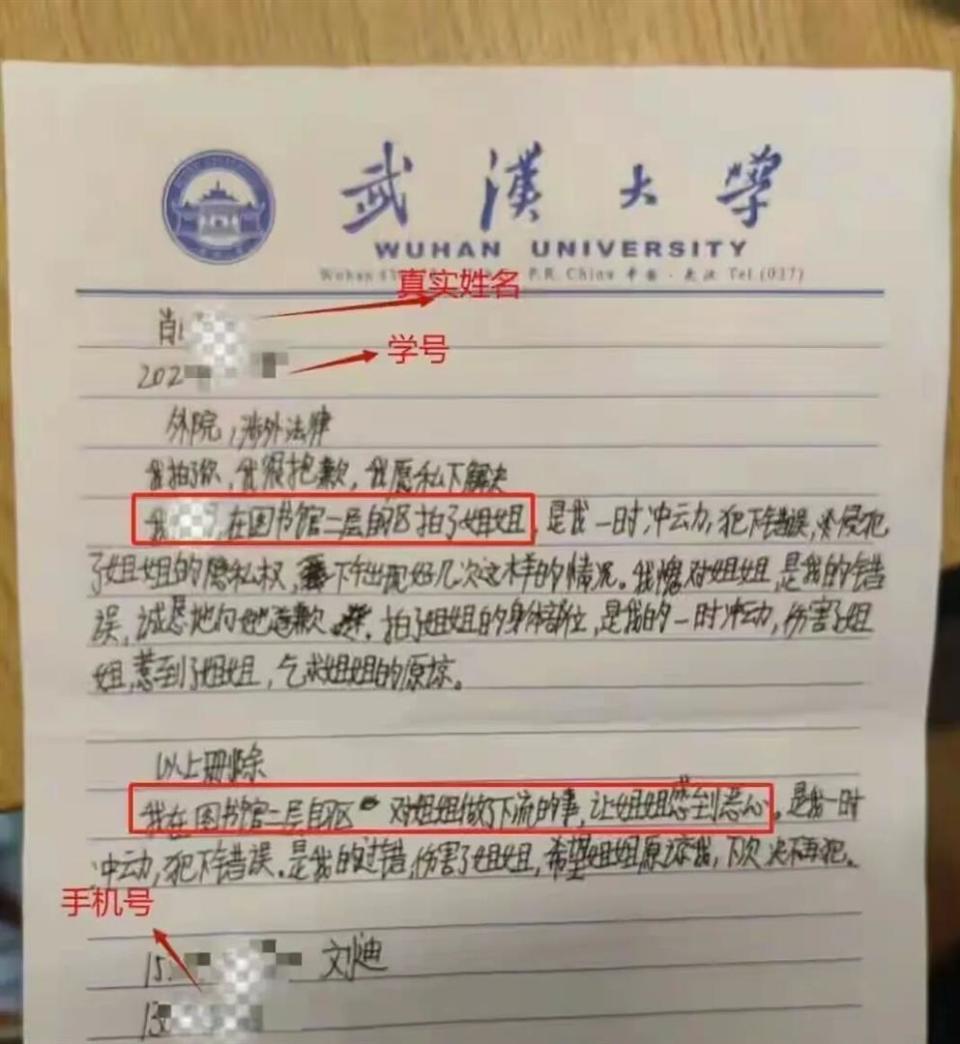 武漢大學
WUHAN UNIVERSITY
Wuhan P.R. China 中国·武汉 Tel (027)
真实姓名
肖
202
学号
外院，涉外法律
我拍了你，我很抱歉，我愿私下解决
我 在图书馆二层自区拍了姐姐，是我一时冲云力，犯下错误，侵犯
了姐姐的隐私权，下午出现好几次这样的情况。我愧对姐姐，是我的错
误，诚恳地向她道歉 拍了姐姐的身体部位，是我的一时冲动，伤害了姐
姐，惹到了姐姐，乞求姐姐的原谅。
以上删除
我在图书馆二层自区 对姐姐做了下流的事，让姐姐感到恶心。是我一时
冲动，犯下错误。是我的过错，伤害了姐姐，希望姐姐原谅我，下次决不再犯。
手机号
15 刘迪
13